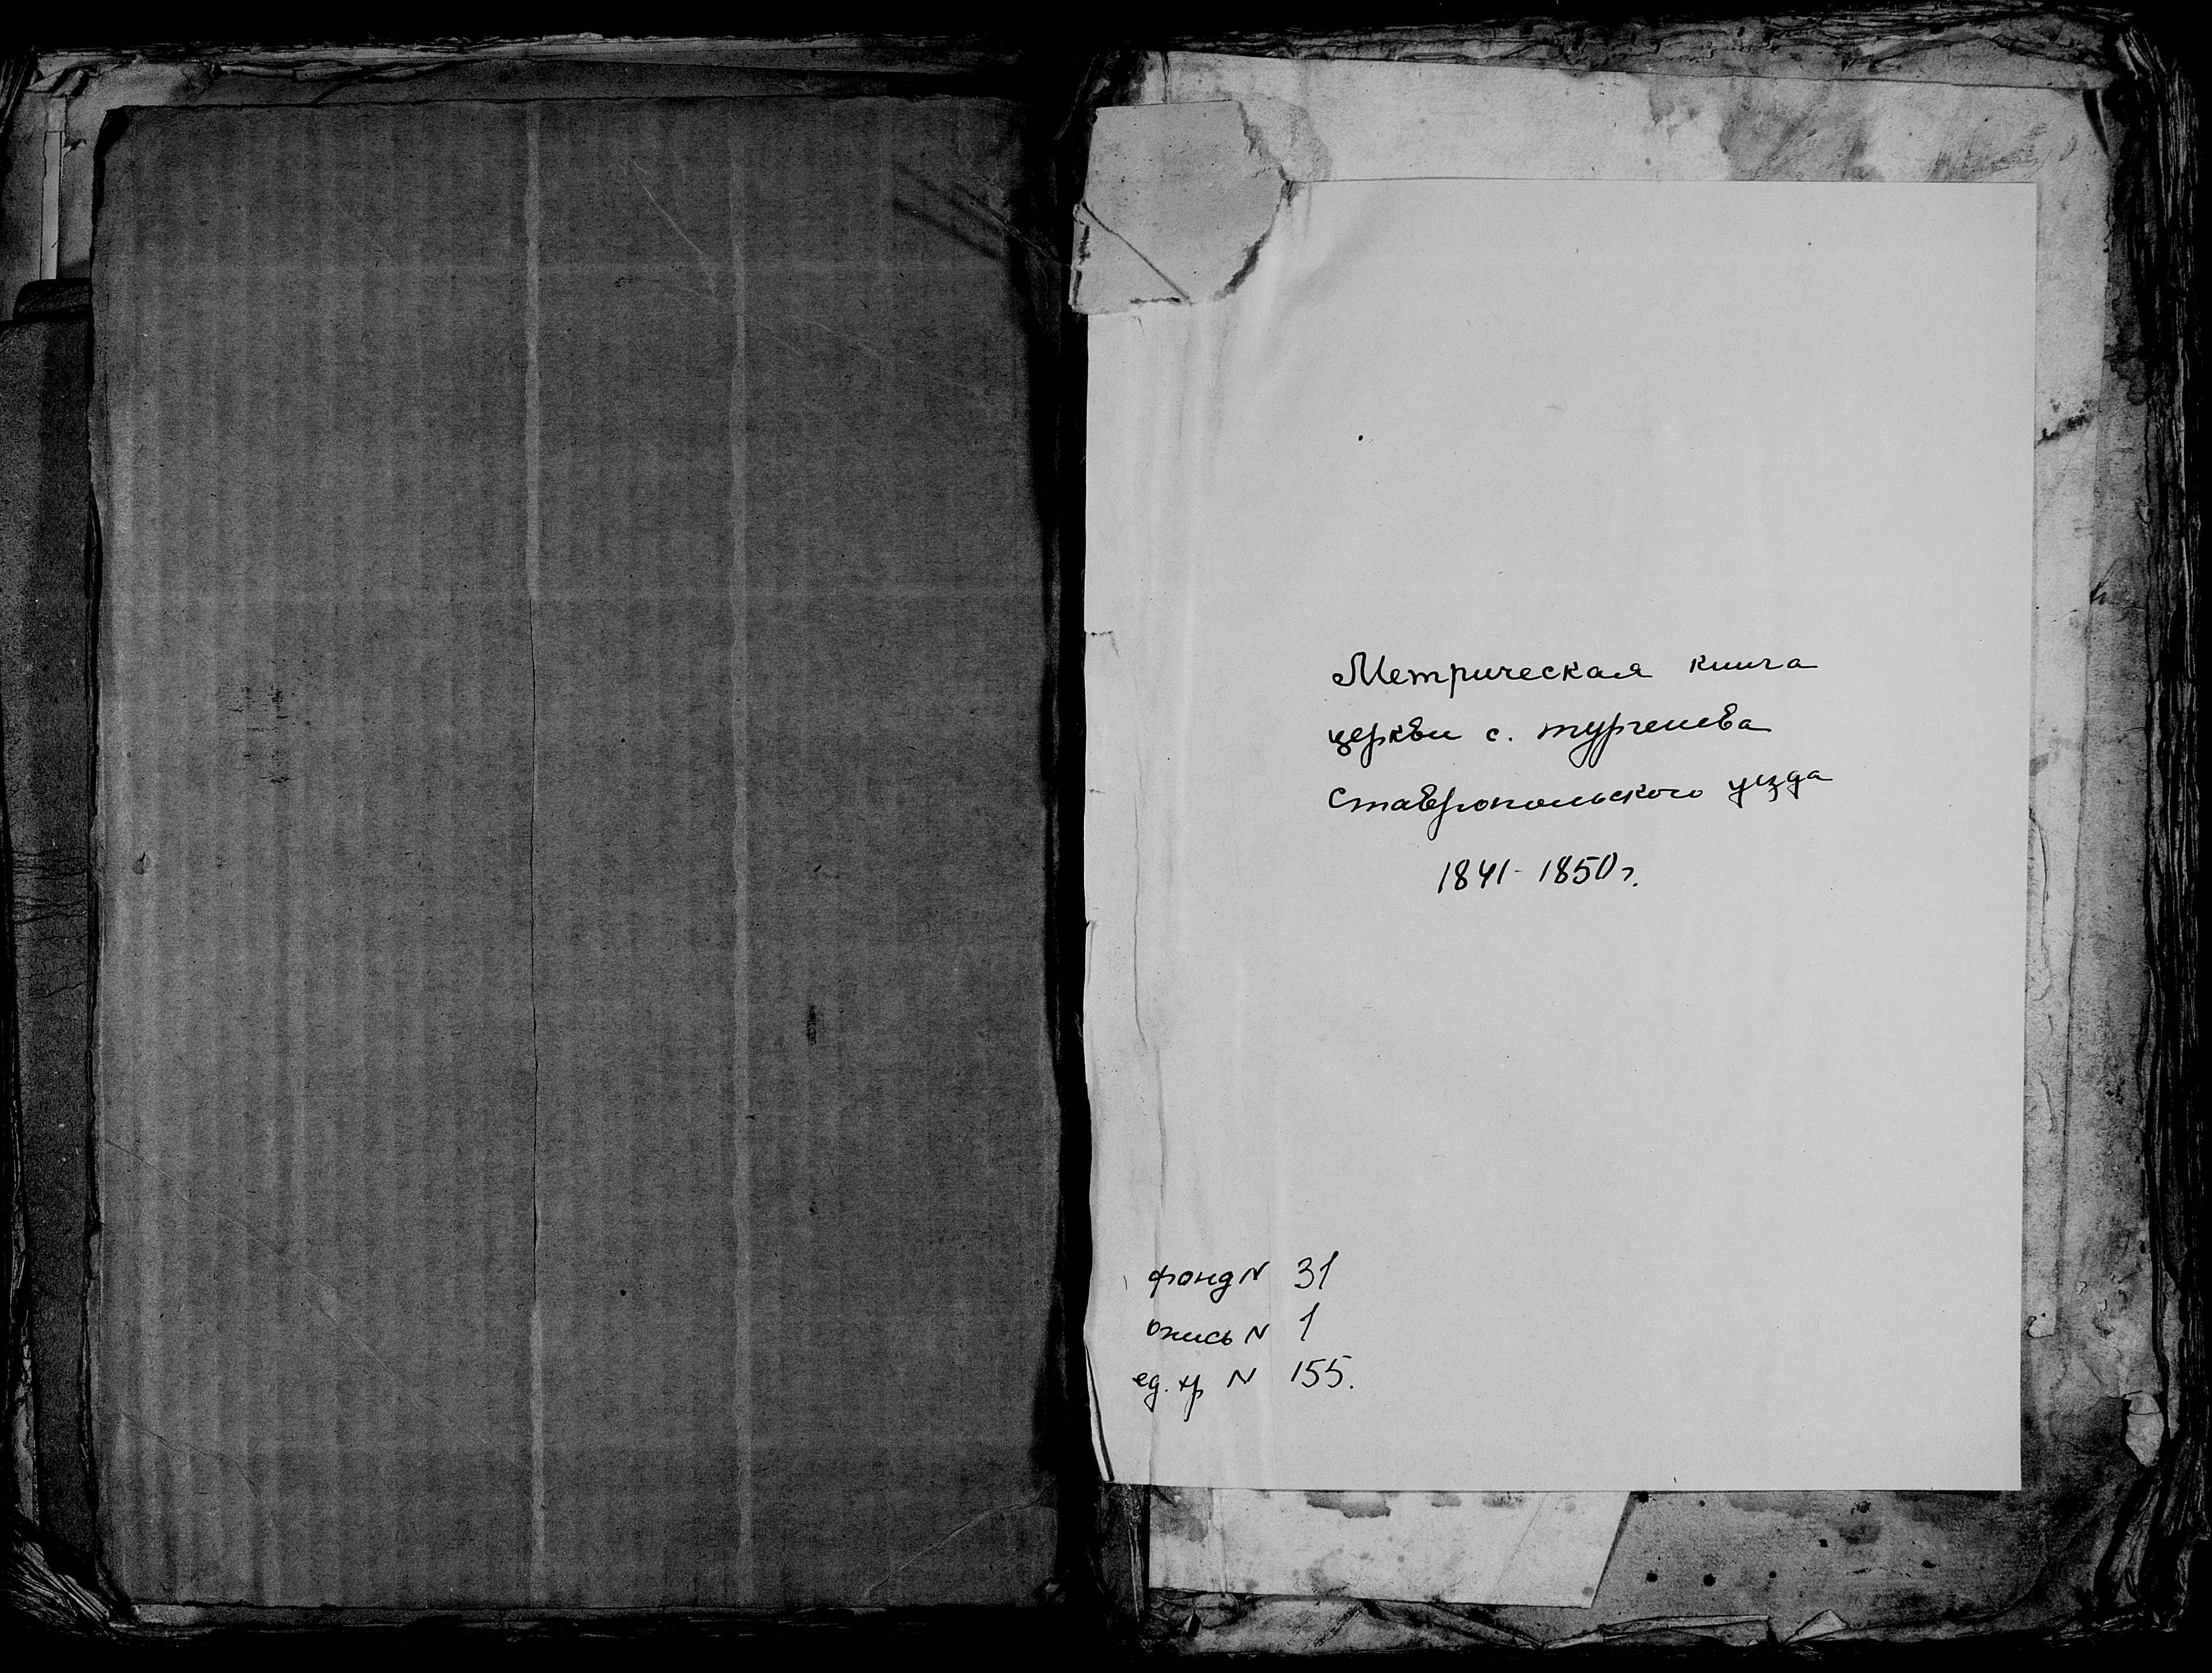 Метрическая книга
церкви с. тургенева
Ставропольского уезда
1841-1850г.
фонд N 31
опись N 1
ед. хр N 155.